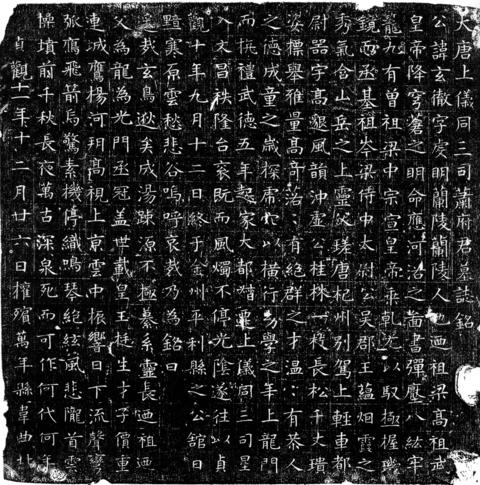 大唐上儀同三司蕭府君墓誌銘
公諱玄徹字虔明蘭陵蘭陵人也迺祖梁高祖武
皇帝降穹蒼之明命應河洛之啚書彈壓八紘牢
籠九有曾祖梁中宗宣皇帝乘乾光以馭極握璣
鏡而丞基祖岑梁侍中太尉公吳郡王蘊烟雲之
秀氣含山岳之上靈父瑳唐杞州別駕上輕車都
尉器宇高懇風韻沖虛公桂株一枝長松千丈瓌
姿標舉雅量高奇落〻有絕群之才溫〻有恭人
之德成童之歲探虎穴以橫行幼學之年上龍門
而拱禮武德五年起家大都督遷上儀同三司星
入文昌秩隆台衮既而風燭不停光陰遂往以貞
觀十年九月十二日終于金州平利縣之公館日
黯寒原雲愁悲谷嗚呼哀哉乃為銘曰
遙哉玄鳥逖矣成湯疎源不極纂系靈長迺祖迺
父為龍為光門丞冠蓋世載皇王挺生才子價重
連城鷹楊河玥高視上京雲中振響日下流聲彎
弧鴈飛箭烏驚素機停織鳴琴絕絃風悲隴首雲
慘墳前千秋長夜萬古深泉死而可作何代何年
貞觀十一年十二月廿六日權殯萬年縣韋曲北